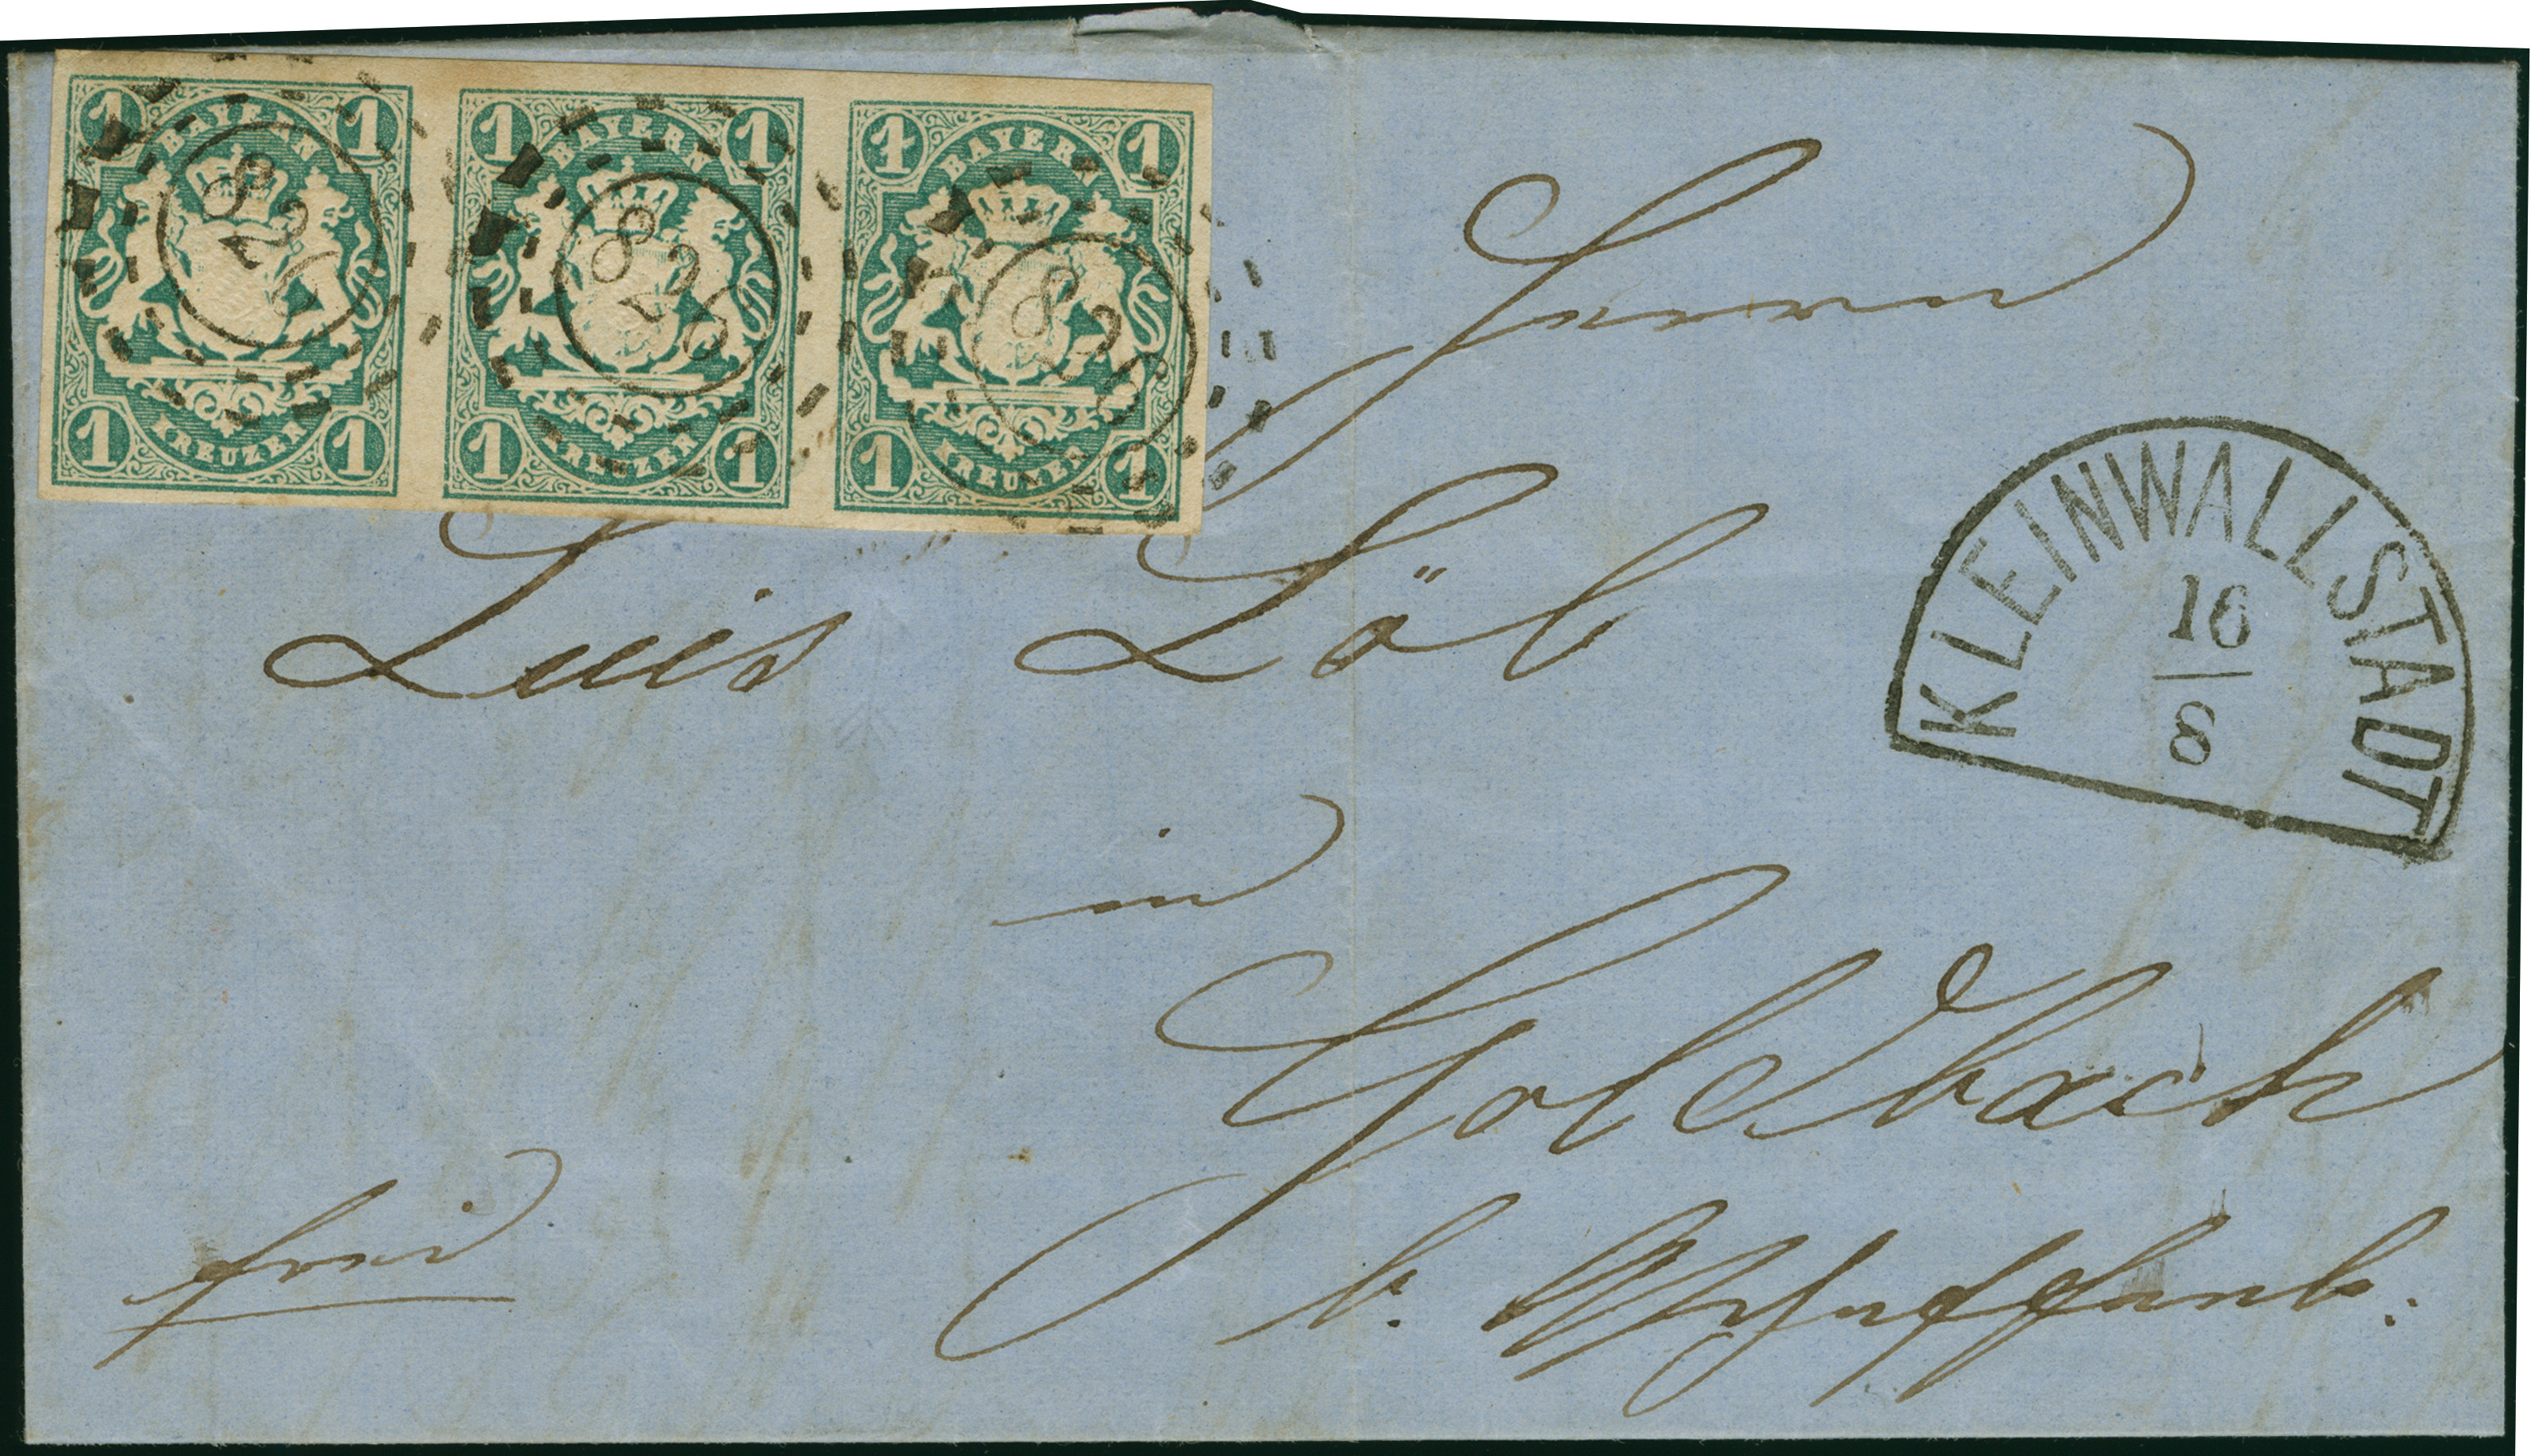 1 1
BAYERN
826
KREUZER
1 1
1 1
BAYERN
826
KREUZER
1 1
1 1
BAYERN
826
KREUZER
1 1
Herrn
Luis Löb
KLEINWALLSTADT
16
8
in
Goldbach
frei
b. Aschaffenb.